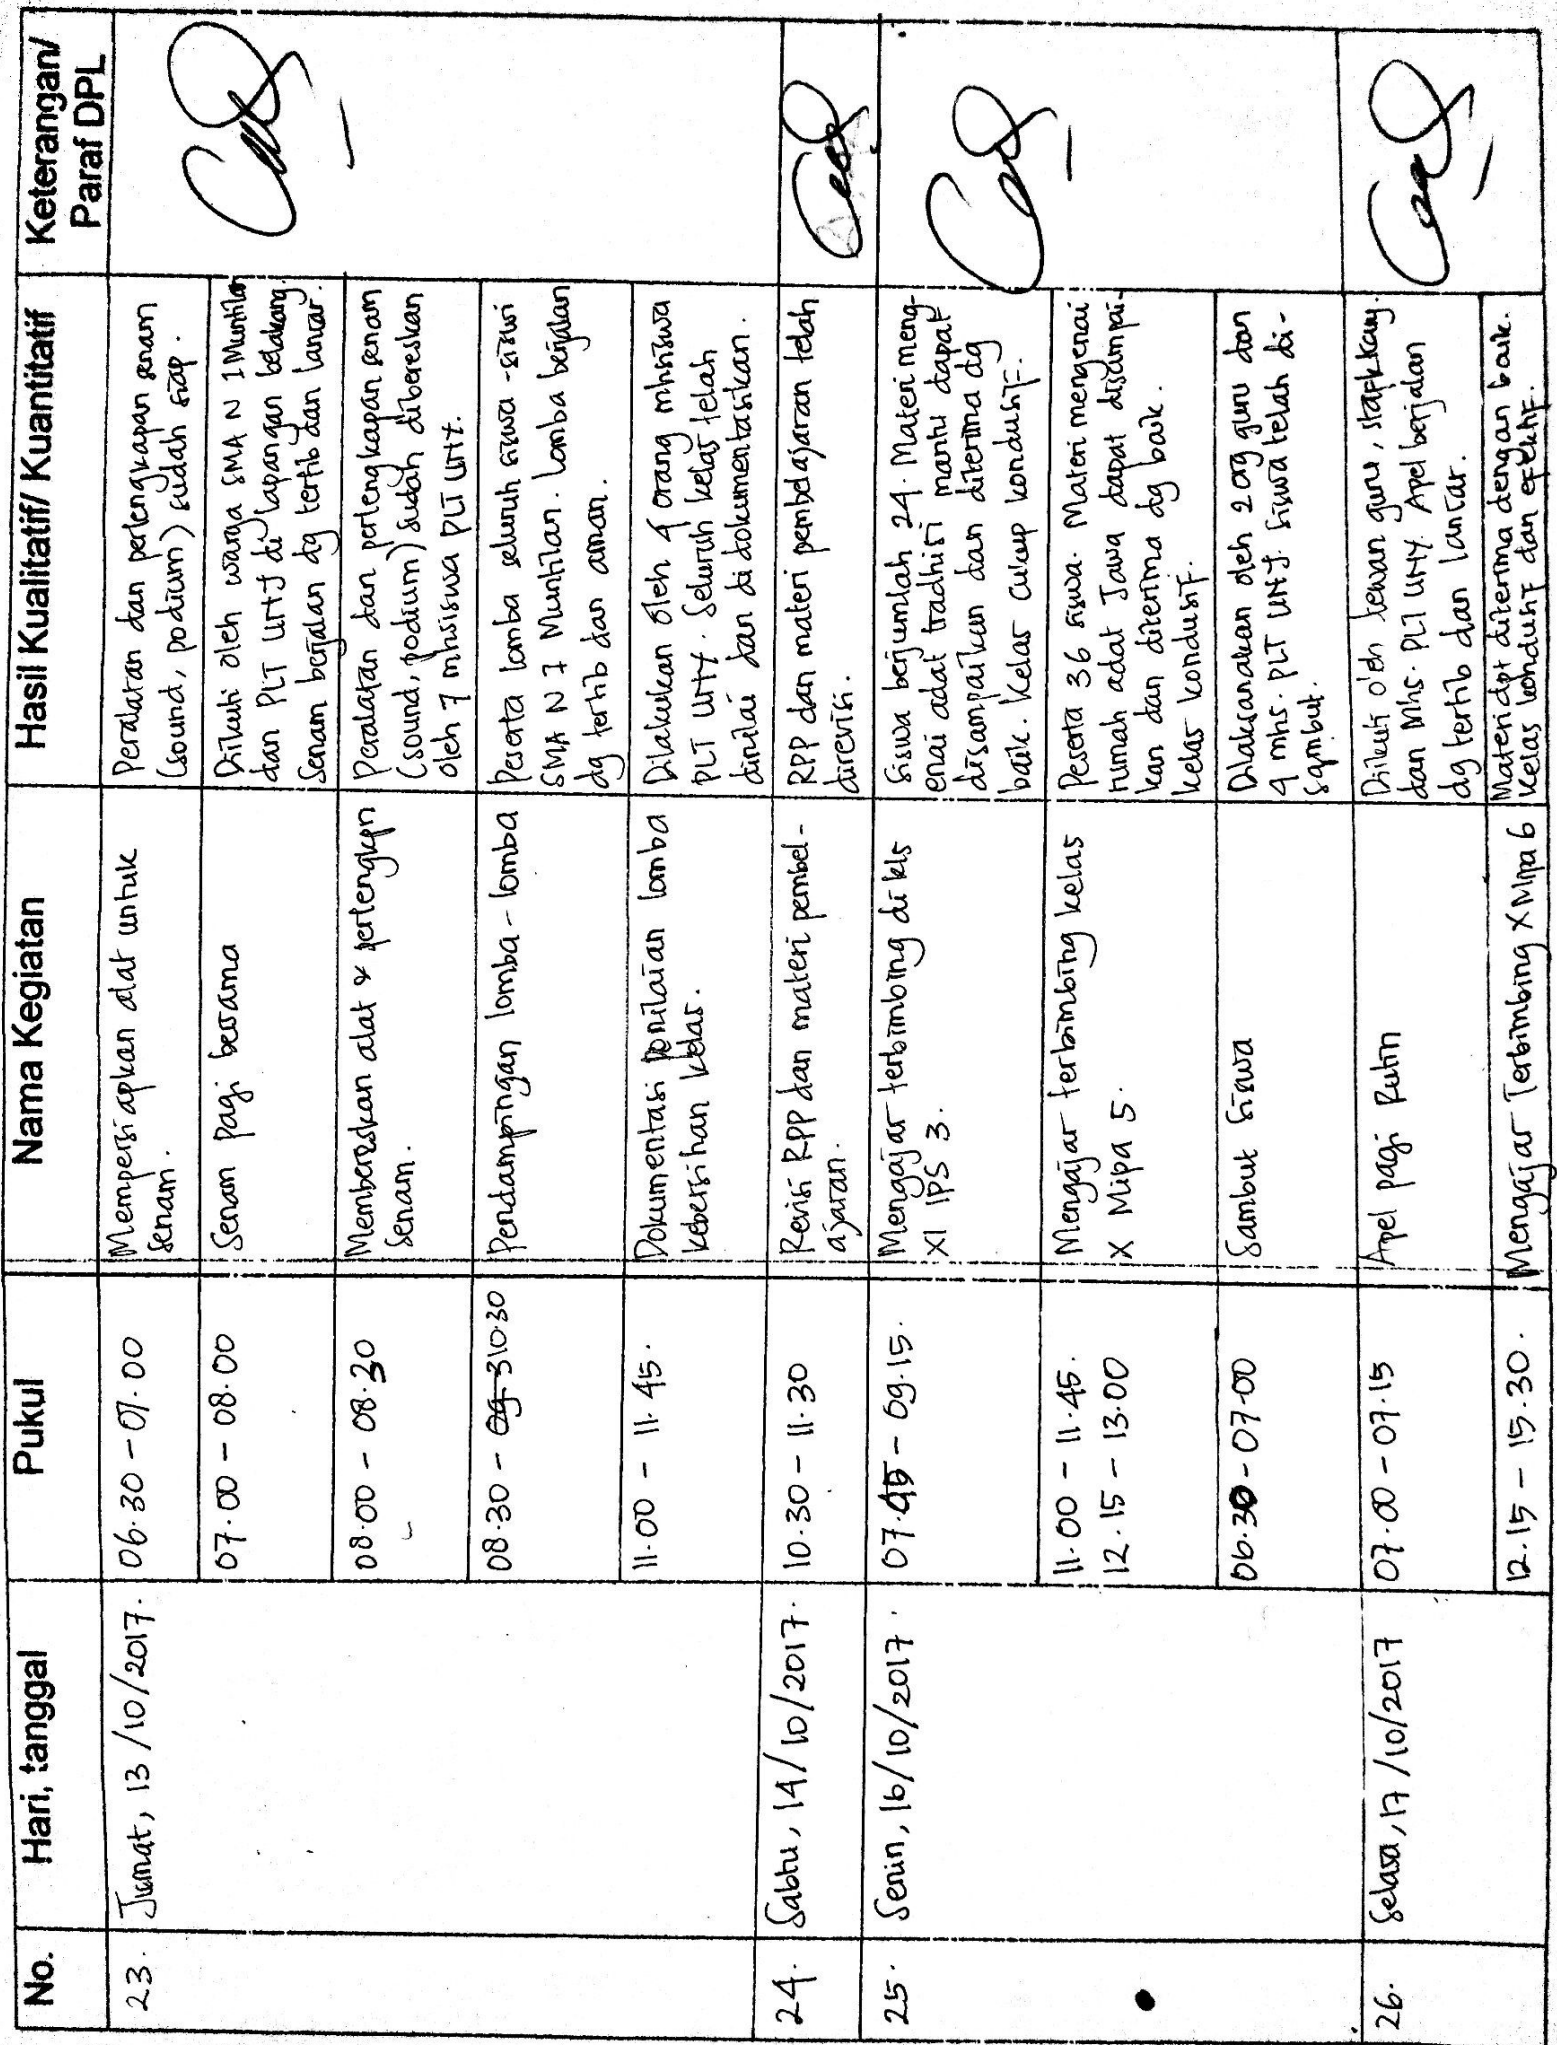 No.
Hari, tanggal
Pukul
Nama Kegiatan
Hasil Kualitatif/ Kuantitatif
Keterangan/
Paraf DPL
23.
Jumat, 13/10/2017.
06.30 - 07.00
Mempersiapkan alat untuk
senam.
Peralatan dan perlengkapan senam
(sound, podium) sudah siap.
07.00 - 08.00
Senam pagi bersama
Diikuti oleh warga SMA N 1 Muntilan
dan PLT UNY di lapangan belakang.
Senam berjalan dg tertib dan lancar.
08.00 - 08.30
Membereskan alat & perlengkpn
senam.
Peralatan dan perlengkapan senam
(sound, podium) sudah dibereskan
oleh 7 mhsiswa PLT UNY.
08.30 - 09.3 10.30
Pendampingan lomba-lomba
Peserta lomba seluruh siswa-siswi
SMA N 1 Muntilan. Lomba berjalan
dg tertib dan aman.
11.00 - 11.45.
Dokumentasi penilaian lomba
kebersihan kelas.
Dilakukan oleh 4 orang mhsiswa
PLT UNY. Seluruh kelas telah
dinilai dan di dokumentasikan.
24.
Sabtu, 14/10/2017.
10.30 - 11.30
Revisi RPP dan materi pembel-
ajaran.
RPP dan materi pembelajaran telah
direvisi.
25.
Senin, 16/10/2017.
07.45 - 09.15.
Mengajar terbimbing di kls
XI IPS 3.
Siswa berjumlah 24. Materi meng-
enai adat tradhisi mantu dapat
disampaikan dan diterima dg
baik. Kelas cukup kondusif.
11.00 - 11.45.
12.15 - 13.00
Mengajar terbimbing kelas
X Mipa 5.
Peserta 36 siswa. Materi mengenai
rumah adat Jawa dapat disampai-
kan dan diterima dg baik.
kelas kondusif.
06.30 - 07.00
Sambut Siswa
Dilaksanakan oleh 2 org guru dan
4 mhs. PLT UNY. Siswa telah di-
sambut.
26.
Selasa, 17/10/2017
07.00 - 07.15
Apel pagi Rutin
Diikuti oleh dewan guru,
dan Mhs. PLT UNY. Apel berjalan
dg tertib dan lancar.
12.15 - 15.30.
Mengajar Terbimbing X Mipa 6
Materi dpt diterima dengan baik.
Kelas kondusif dan efektif.